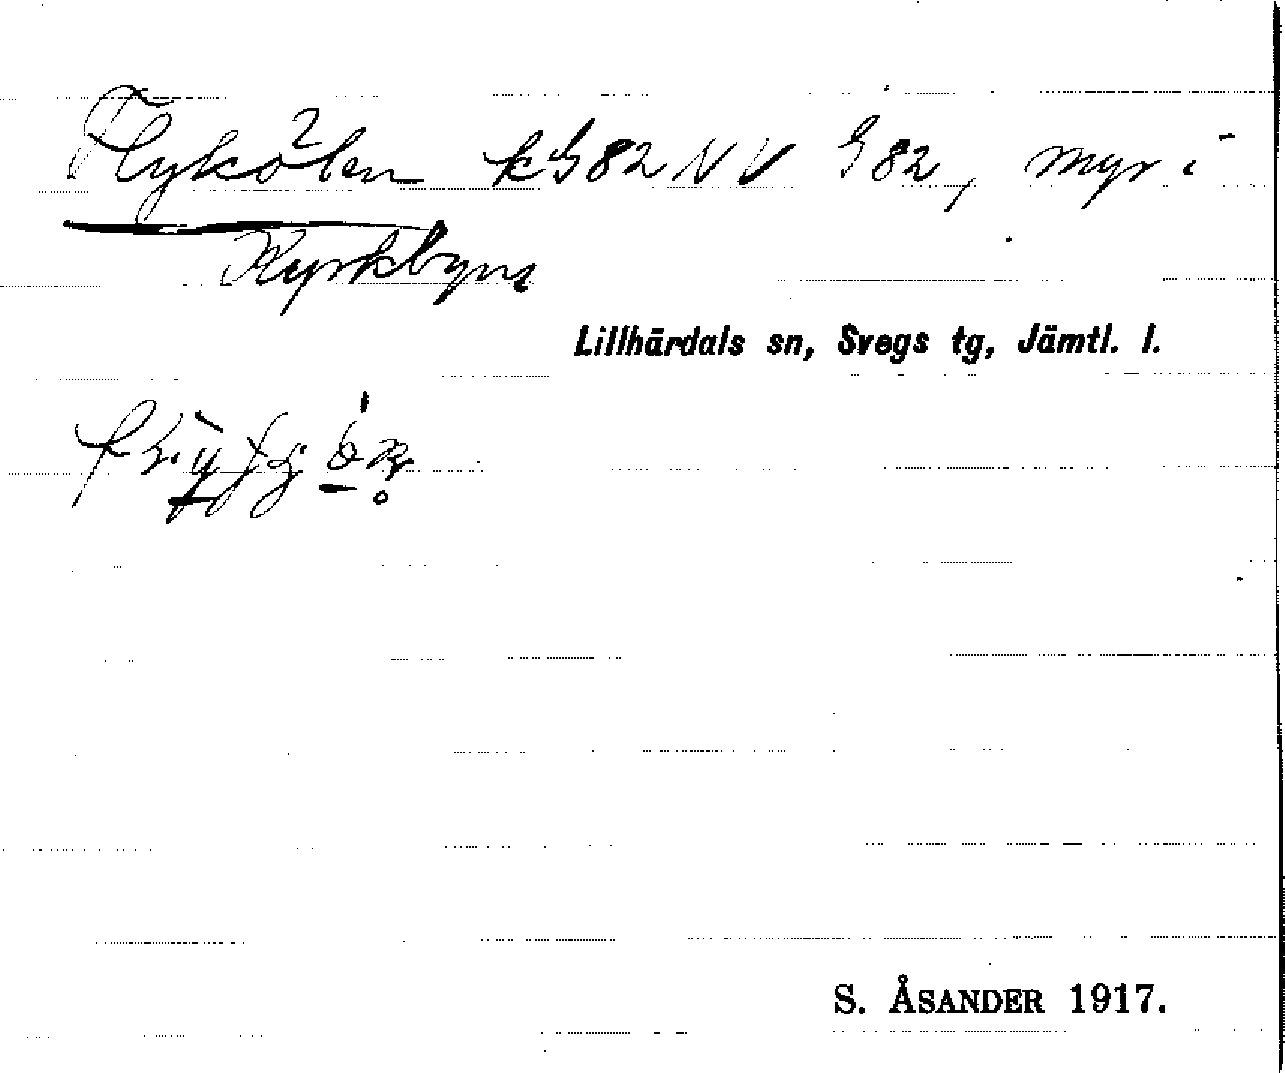 Flykölen k G82 NV G82, myr i
Kyrkbyns
Lillhärdals sn, Svegs tg, Jämtl. l.
S. ÅSANDER 1917.